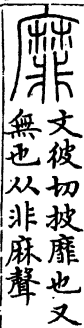 靡
文彼切披靡也又
無也从非麻聲